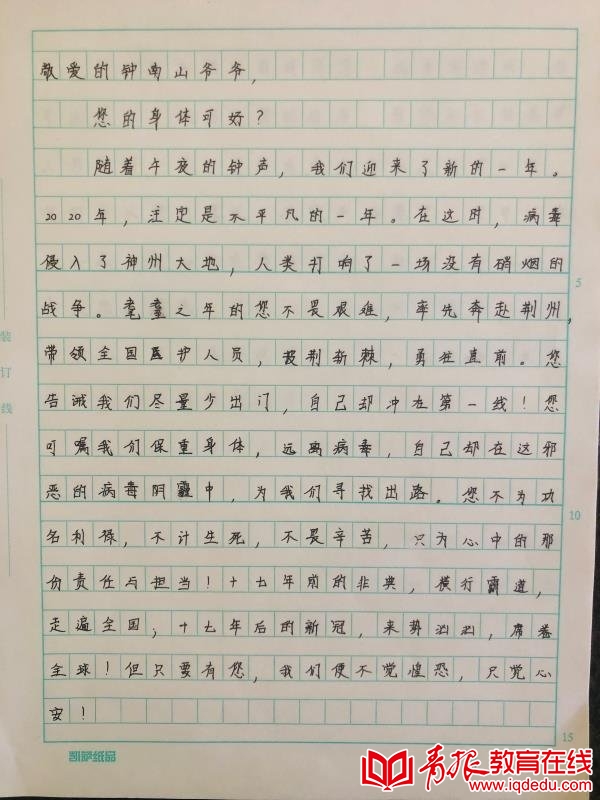 敬爱的钟南山爷爷，
您的身体可好？
随着午夜的钟声，我们迎来了新的一年。
2020年，注定是不平凡的一年。在这时，病毒
侵入了神州大地，人类打响了一场没有硝烟的
战争。耄耋之年的您不畏艰难，率先奔赴荆州，
带领全国医护人员，披荆斩棘，勇往直前。您
告诫我们尽量少出门，自己却冲在第一线！您
叮嘱我们保重身体，远离病毒，自己却在这邪
恶的病毒阴霾中，为我们寻找出路。您不为功
名利禄，不计生死，不畏辛苦，只为心中的那
份责任与担当！十七年前的非典，横行霸道，
走遍全国；十七年后的新冠，来势汹汹，席卷
全球！但只要有您，我们便不觉惶恐，只觉心
安！
装
订
线
5
10
15
凯萨纸品
青报教育在线
www.iqdedu.com